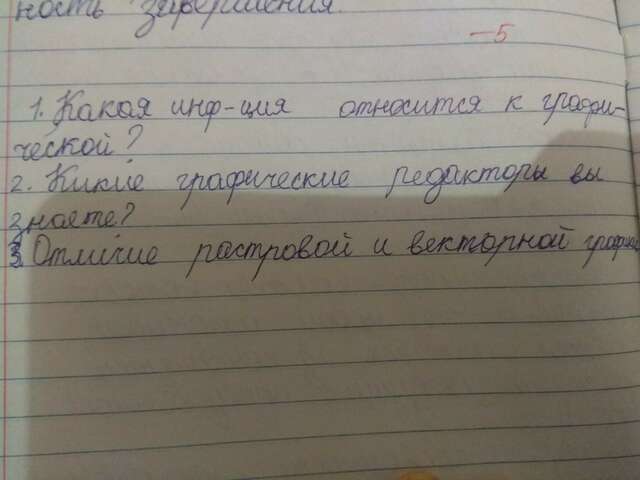 ность завершения.
-5
1. Какая инф-ция относится к графи-
ческой?
2. Кикие графические редакторы вы
знаете?
3 Отличие растровой и векторной график